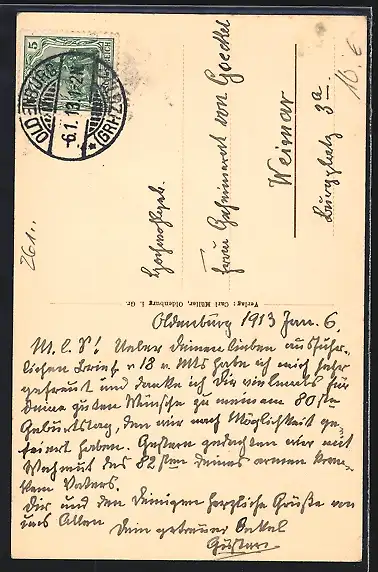 5
OLDENBURG
6.1.13.
(GRHZGT.)
Hochwohlgeb.
Frau Geheimerat von Goeckel
Weimar
Burgplatz 3a.
16.€
261..
Verlag: Carl Müller, Oldenburg i. Gr.
Oldenburg 1913 Jan. 6.
M. l. S! Ueber deinen lieben ausführ-
lichen Brief v 18 v. Mts habe ich mich sehr
gefreut und danke ich dir vielmals für
Deine guten Wünsche zu meinem 80ste
Geburtstag, den wir nach Möglichkeit ge-
feiert haben. Gestern gedachten wir mit
Wehmut des 82sten deines armen kran-
ken Vaters.
Dir und den Deinigen herzliche Grüße von
uns Allen
Dein getreuer Onkel
Gustav